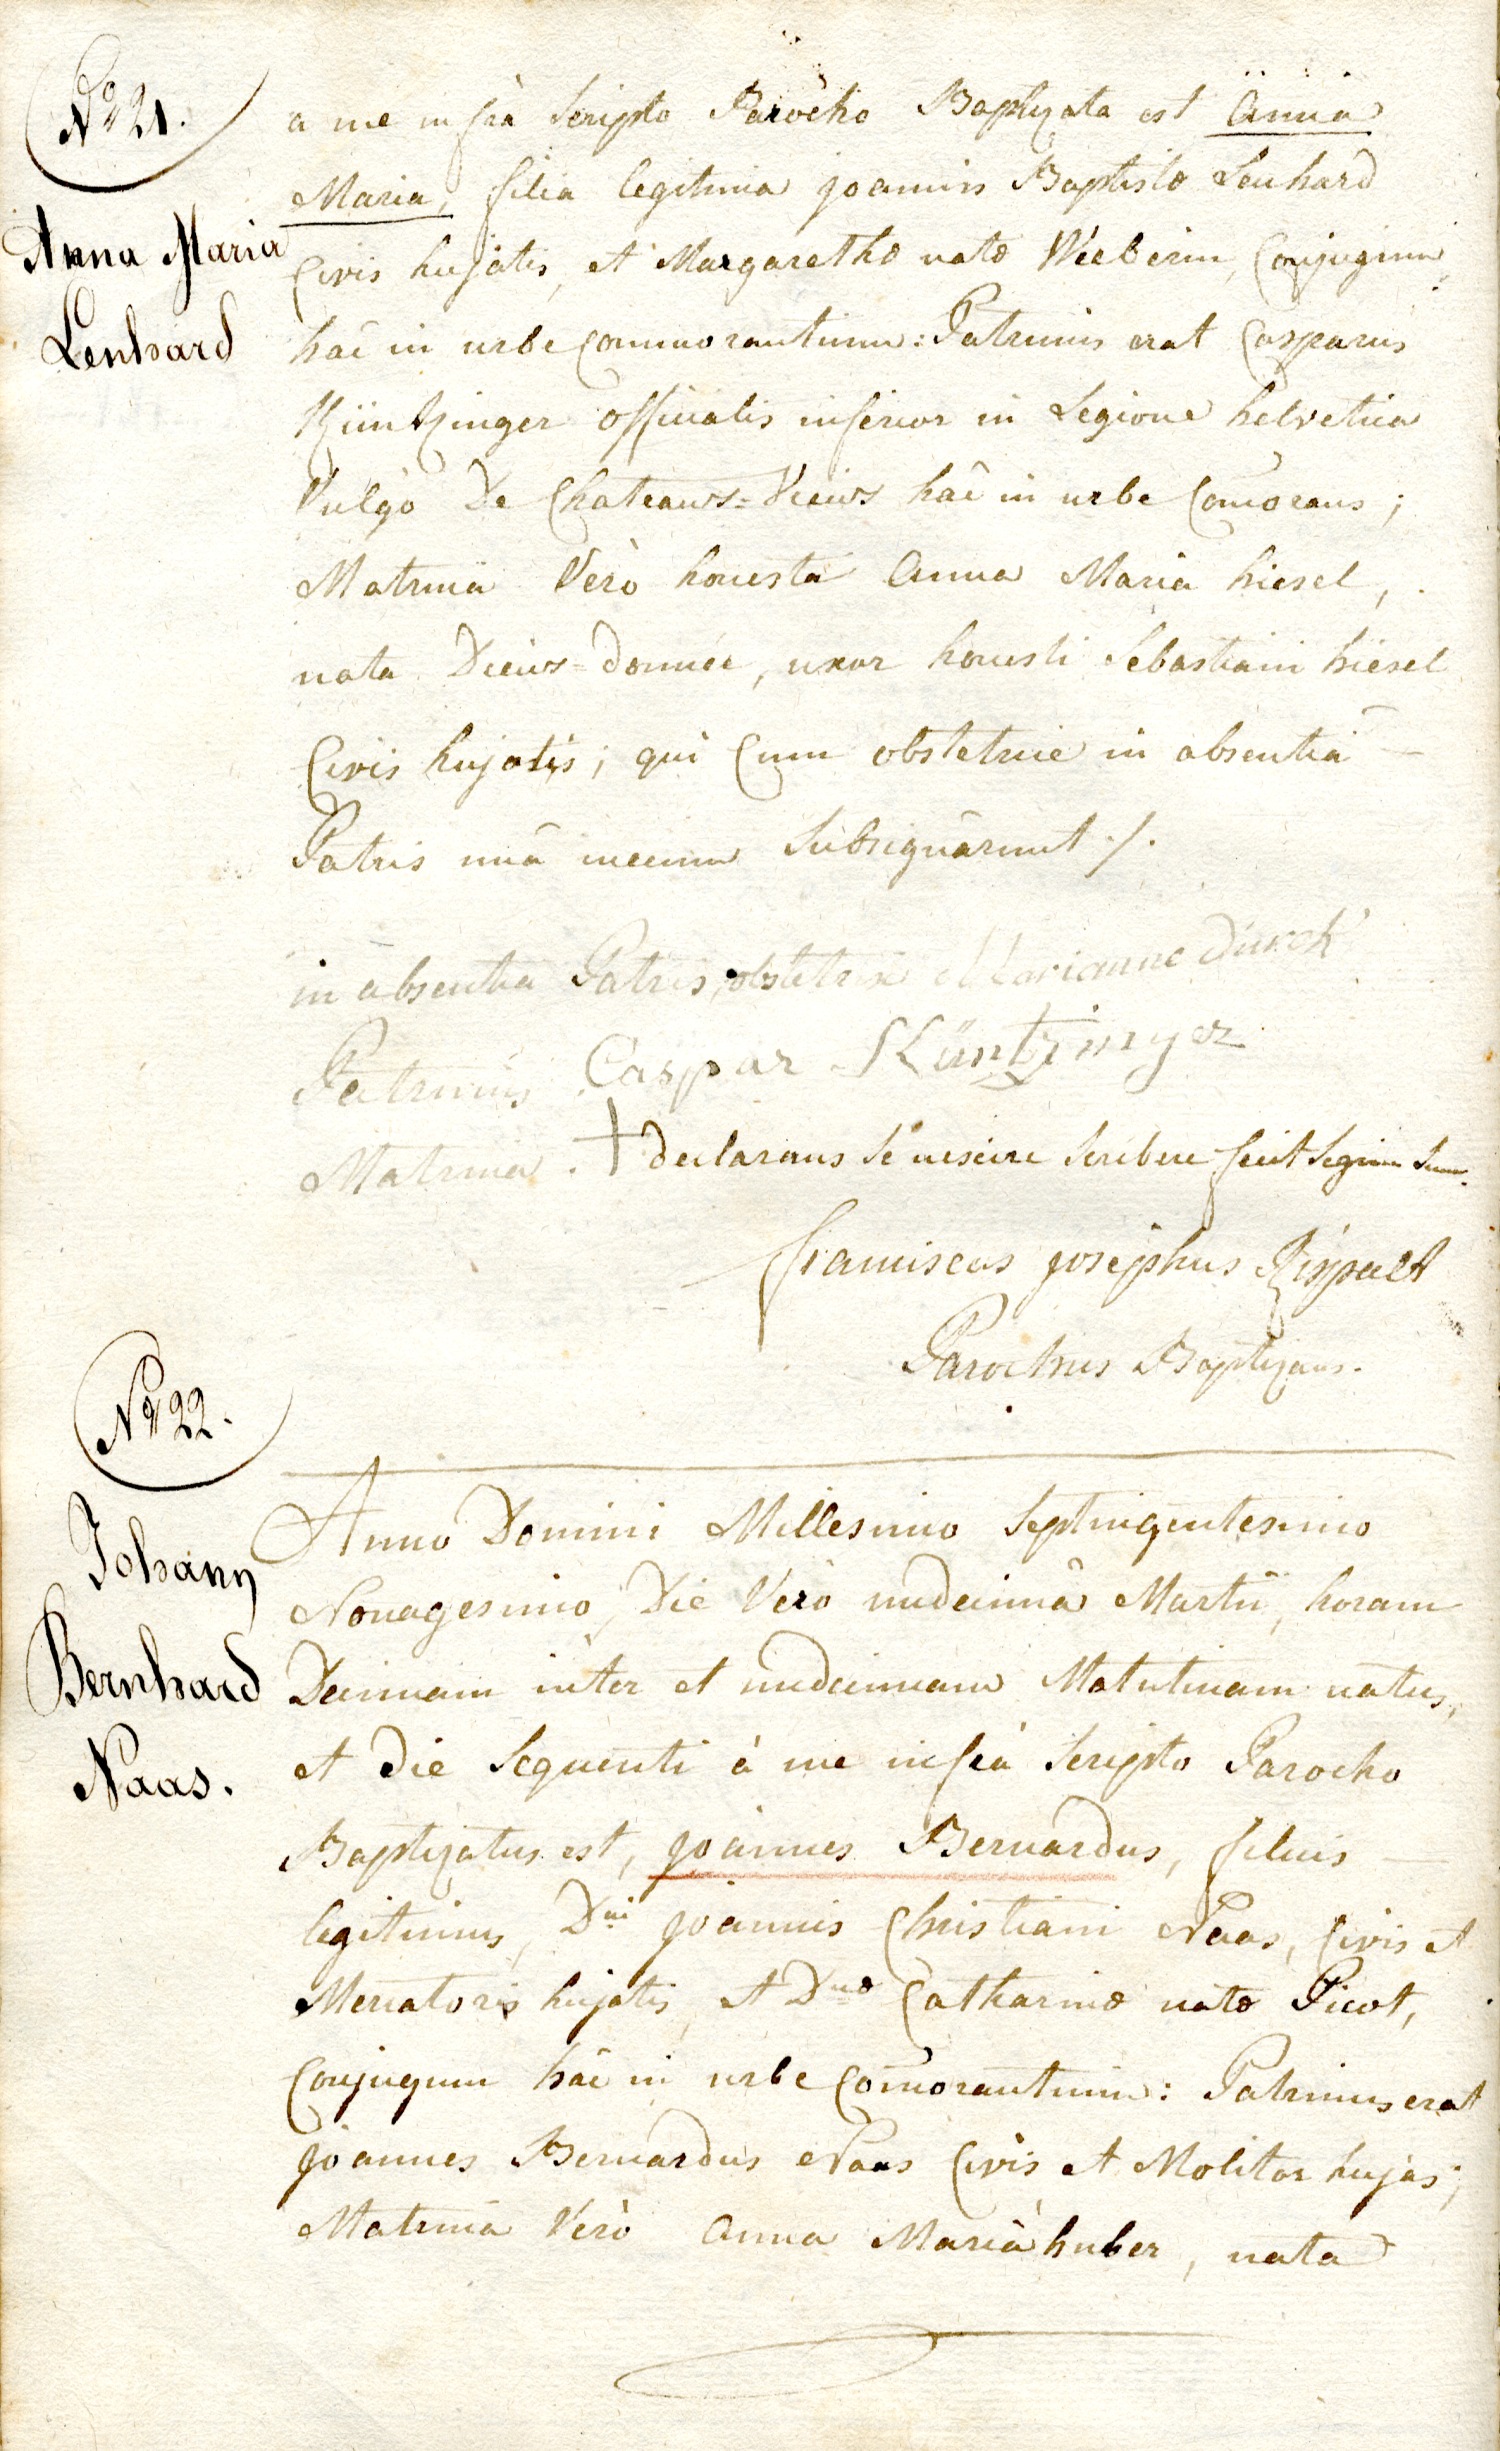 No 21.
Anna Maria
Lenhard
a me infrà Scripto Parocho Baptizata est Anna
Maria, filia legitima joannis Baptistæ Lenhard
Civis hujatis, et Margarethæ natæ Weeberin, Conjugum
hâc in urbe Commorantium: Patrinus erat Casparus
Küntzinger officialis inferior in Legione helvetica
Vulgò De Chateaux=Vieux hâc in urbe Com̃orans;
Matrina Verò honesta Anna Maria hiesel,
nata Dieus=donnée, uxor honesti Sebastiani hiesel
Civis hujatis; qui Cum obstetrice in absentiâ
Patris unâ mecum Subsignârunt ./.
in absentia Patris, obstetrix Marianne Dürck
Patrinus Caspar Küntzinger
Matrina. + declarans Se nescire Scribere fecit Signum Suum.
franciscus josephus Rispalt
Parochus Baptizans.
No 22.
Johann
Bernhard
Naas.
Anno Domini Millesimo Septingentesimo
Nonagesimo, Die Verò undecimâ Martii, horam
Decimam inter et undecimam Matutinam natus,
et Die Sequenti à me infrà Scripto Parocho
Baptizatus est, joannes Bernardus, filius
legitimus, Dni joannis Christiani Naas, Civis et
Mercatoris hujatis, et Dnæ Catharinæ natæ Picot,
Conjugum hâc in urbe Com̃orantium: Patrinus erat
joannes Bernardus Naas Civis et Molitor hujas;
Matrina Verò Anna Maria huber, nata